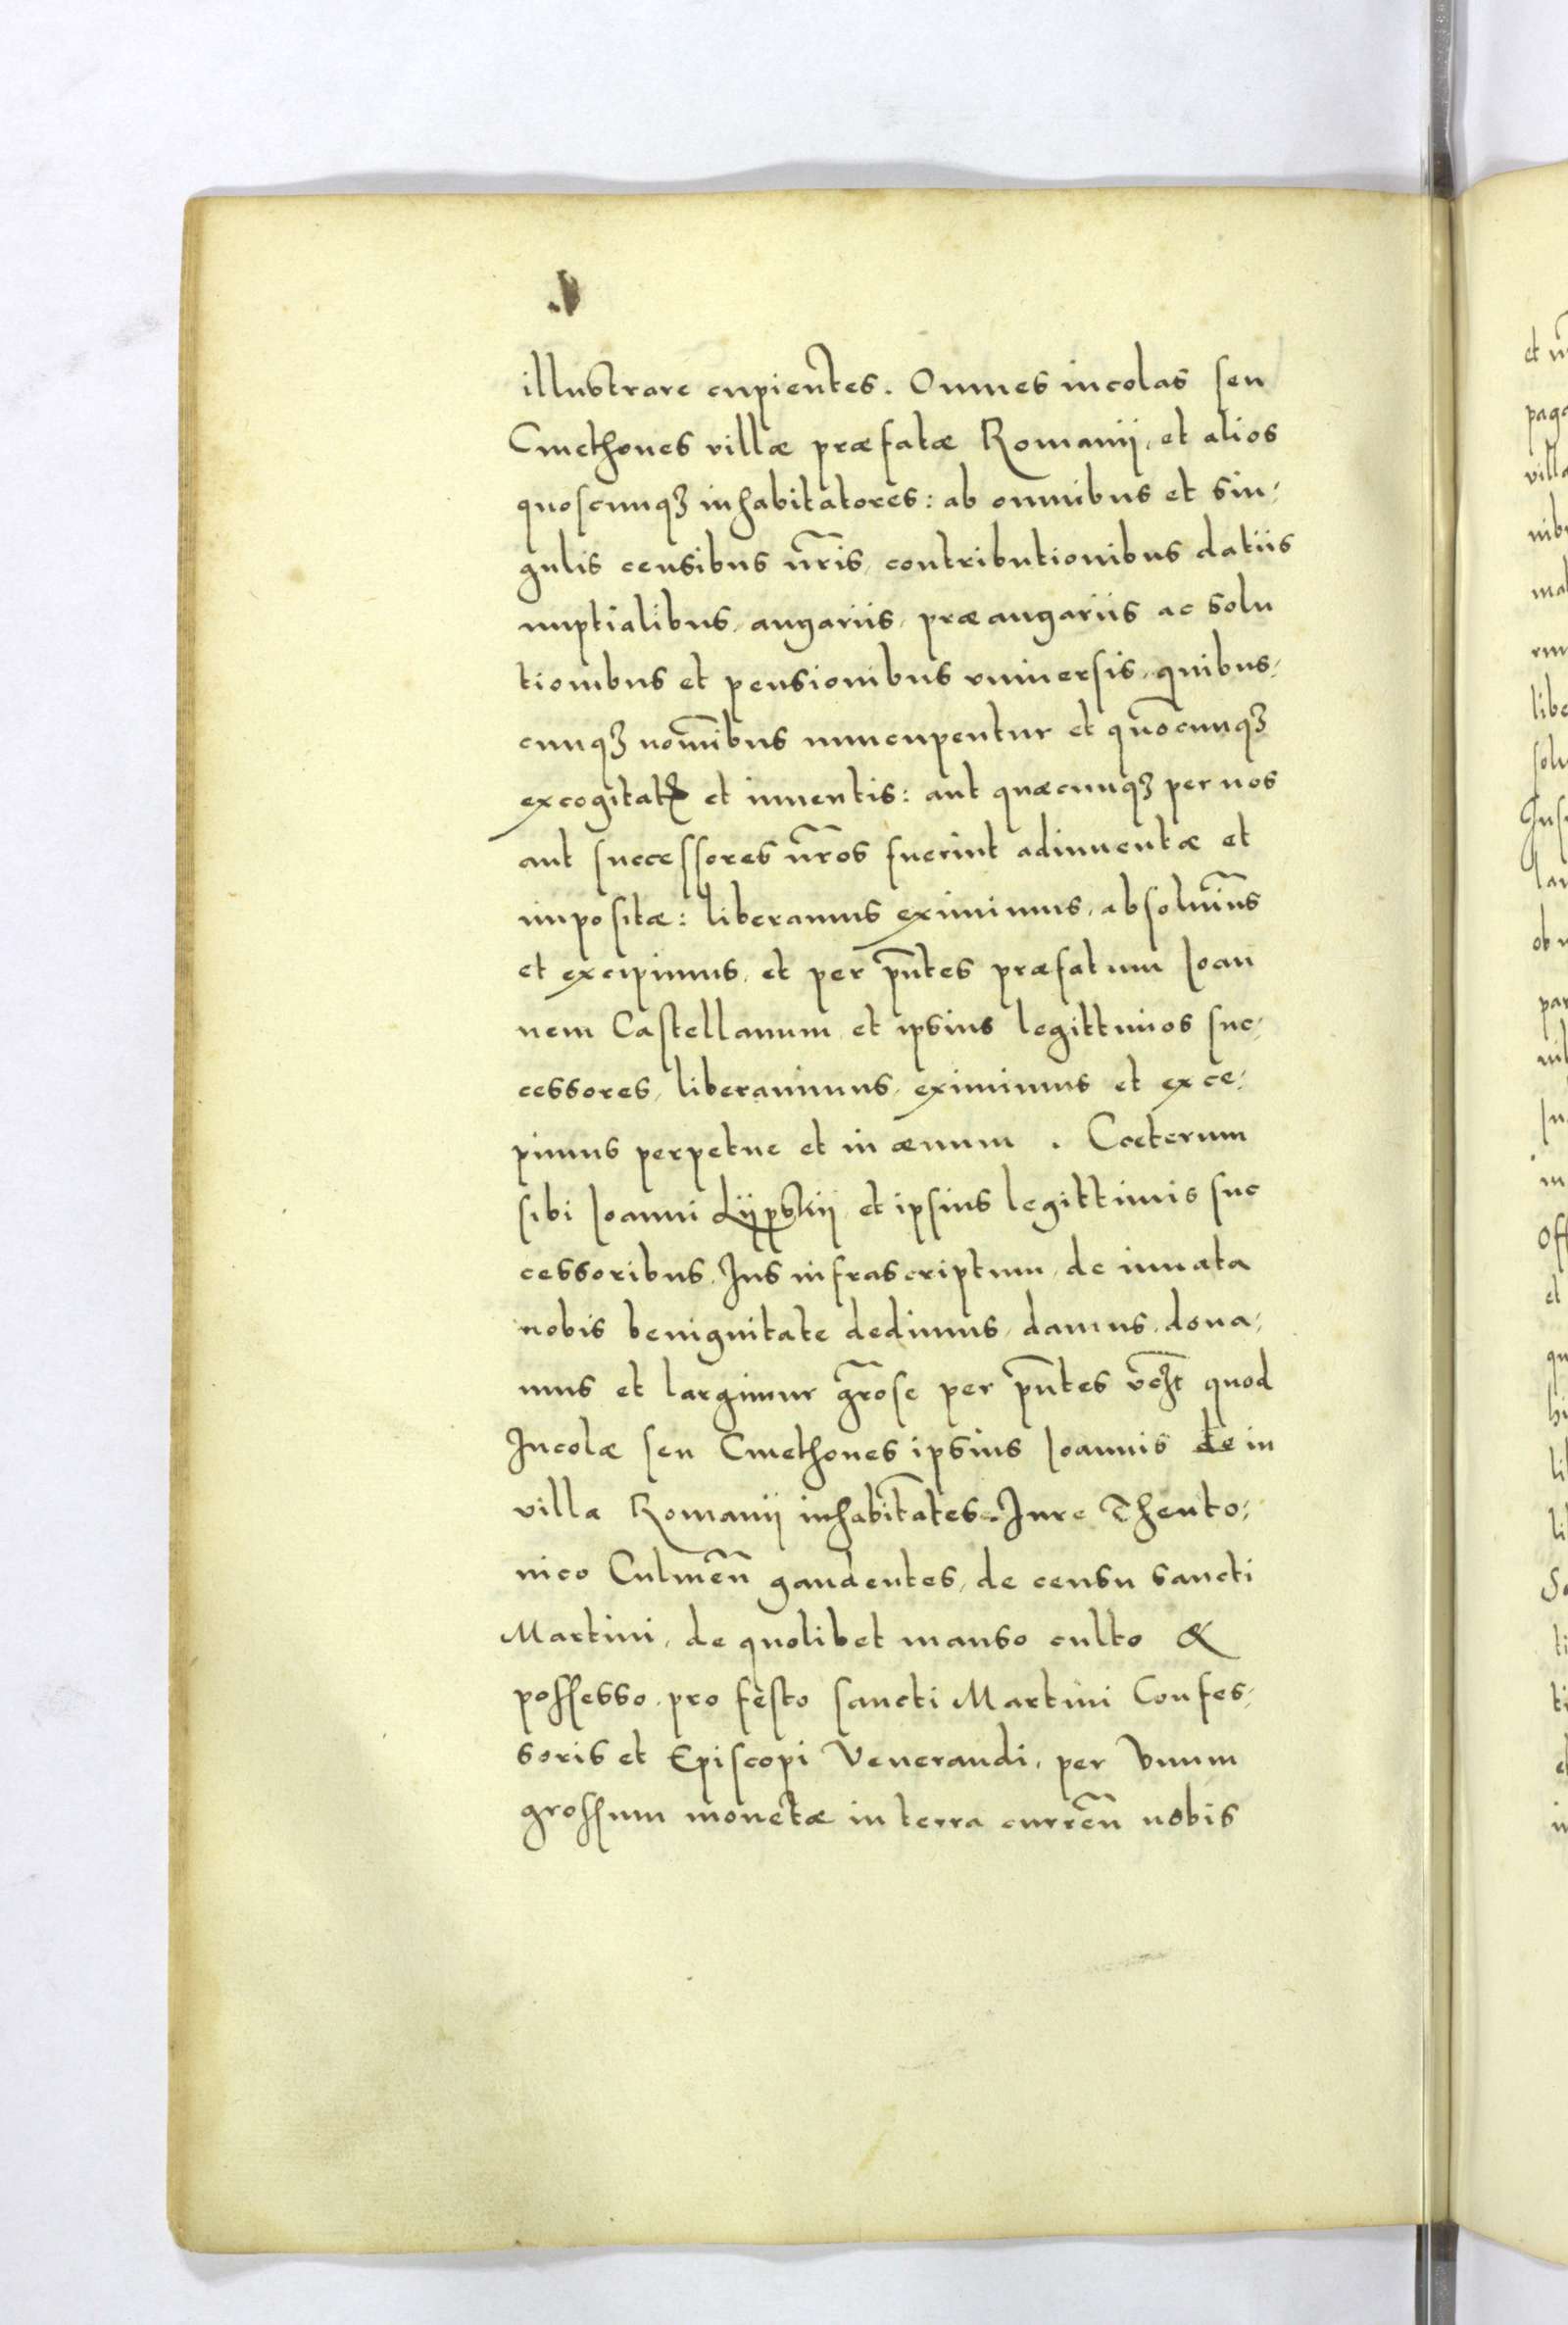 illustrare cupientes. Omnes incolas seu
Cmethones villæ præfatæ Romanij, et alios
quoscunqꝫ inhabitatores: ab omnibus et sin-
gulis censibus nr̃is, contributionibus datiis
nuptialibus, angariis, præangariis ac solu
tionibus et pensionibus vniuersis, quibus-
cunqꝫ nomĩbus nuncupentur et quõcunqꝫ
excogitatꝭ et inuentis: aut quæcunqꝫ per nos
aut successores nr̃os fuerint adinuentæ et
impositæ: liberamus eximimus, absoluim̃us
et excipimus, et per pñtes præfatum Ioan
nem Castellanum et ipsius legittimos suc-
cessores, liberauimus, eximimus et exce-
pimus perpetue et in æuum. Cæterum
sibi Ioanni Lijpskij et ipsius legittimis suc
cessoribus. Jus infrascriptum, de innata
nobis benignitate dedimus, damus, dona-
mus et largimur gr̃ose per pñtes quod
Incolæ seu Cmethones ipsius Ioannis de in
villa Romanij inhabitãtes. Jure Theuto-
nico Culmeñ gaudentes, de censu sancti
Martini, de quolibet manso culto &
possesso. pro festo sancti Martini Confes-
soris et Episcopi Venerandi, per vnum
grossum monetæ in terra curreñ nobis